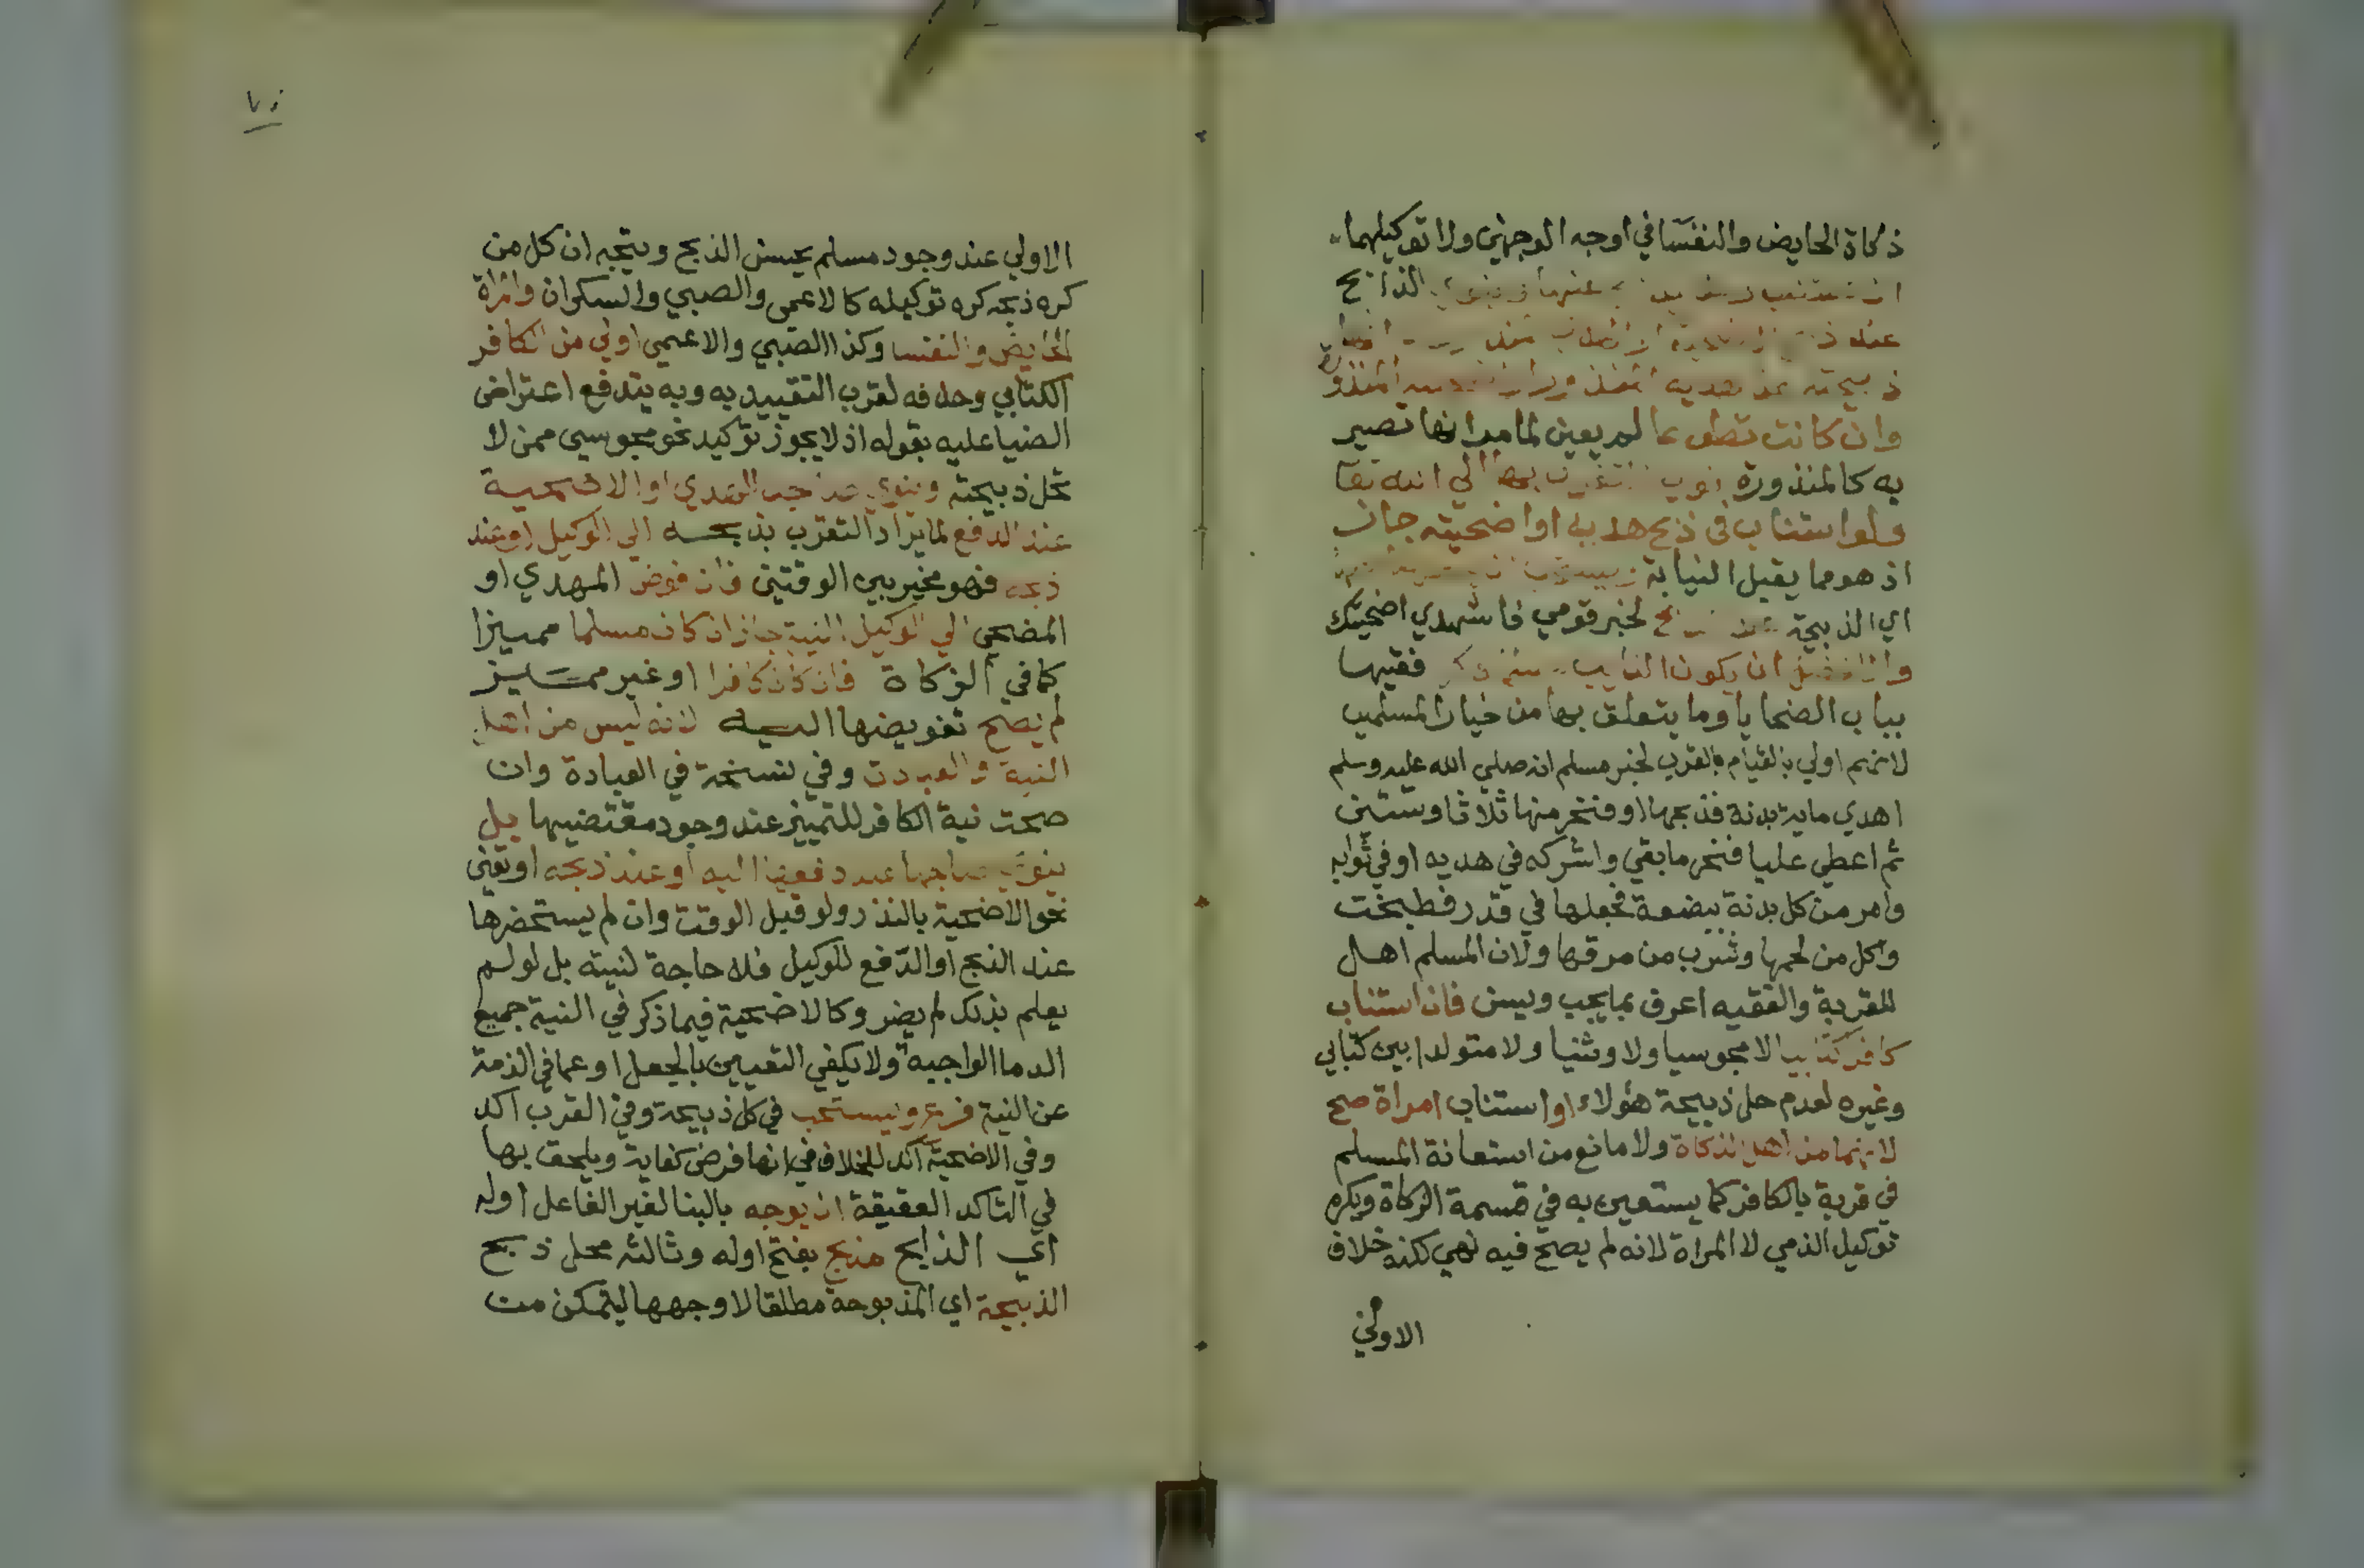 ذكاة الحايض والنفسا في اوجه الوجهين ولا توكيلهما
الذابح
عند
ذبيحته
وان كانت تطوعا لم يعين لما مر انها تصير
به كالمنذورة التقرب بها الي الله تعا
ولو استناب في ذبح هديه او اضحيته جاز
اذ هو مما يقبل النيابة
اي الذبيحة عند الذبح لخبر قومي فاشهدي اضحيتك
والافضل ان يكون النايب مسلم ذكر فقيها
بباب الضحايا وما يتعلق بها من خيار المسلمين
لانهم اولي بالقيام بالقرب لخبر مسلم انه صلي الله عليه وسلم
اهدي ماية بدنة فذبحها او فنحر منها ثلاثا وستين
ثم اعطي عليا فنحر ما بقي واشركه في هديه او في ثوابه
وامر من كل بدنة ببضعة فجعلها في قدر فطبخت
واكل من لحمها وشرب من مرقها ولان المسلم اهل
للقربة والفقيه اعرف بما يجب ويسن فان استناب
كافرا كتابيا لا مجوسيا ولا وثنيا ولا متولدا بين كتابي
وغيره لعدم حل ذبيحة هؤلاء او استناب امراة صح
لانهما من اهل الذكاة ولا مانع من استعانة المسلم
في قربة بالكافر كما يستعين به في قسمة الزكاة ويكره
توكيل الذمي لا المراة لانه لم يصح فيه نهي لكنه خلاف
الاولي
الاولي عند وجود مسلم يحسن الذبح ويتجه ان كل من
كره ذبحه كره توكيله كالاعمي والصبي والسكران وامراة
الحايض والنفسا وكذا الصبي والاعمي اولي من الكافر
الكتابي وحذفه لقرب التقييد به وبه يندفع اعتراض
الضيا عليه بقوله اذ لا يجوز توكيد نحو مجوسي ممن لا
تحل ذبيحته وينوي صاحب الهدي او الاضحية
عند الدفع لما يراد التقرب بذبحه الي الوكيل او عند
ذبحه فهو مخير بين الوقتين فان فوض المهدي او
المضحي الي الوكيل النية جاز ان كان مسلما مميزا
كما في الزكاة فان كان كافرا او غير مميز
لم يصح تفويضها اليه لانه ليس من اهل
النية في العبادات وفي نسخة في العبادة وان
صحت نية الكافر للتمييز عند وجود مقتضيها بل
ينوي صاحبها عند دفعها اليه او عند ذبحه او يعني
نحو الاضحية بالنذر ولو قبل الوقت وان لم يستحضرها
عند الذبح او الدفع للوكيل فلا حاجة لنيته بل لو لم
يعلم بذلك لم يضر وكالاضحية فيما ذكر في النية جميع
الدما الواجبة ولا يكفي التعيين بالجعل او عما في الذمة
عن النية فرع ويستحب في كل ذبيحة وفي القرب اكد
وفي الاضحية اكد للخلاف في انها فرض كفاية ويلحق بها
في التاكد العقيقة ان يوجه بالبنا لغير الفاعل اوله
اي الذابح مذبح بفتح اوله وثالثه محل ذبح
الذبيحة اي المذبوحة مطلقا لا وجهها ليتمكن من